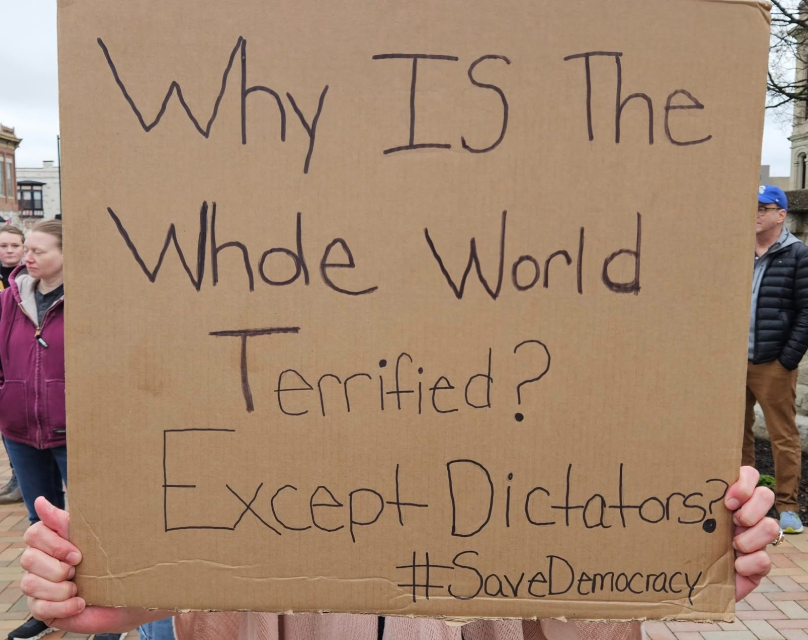 Why IS The
Whole World
Terrified?
Except Dictators?
#SaveDemocracy